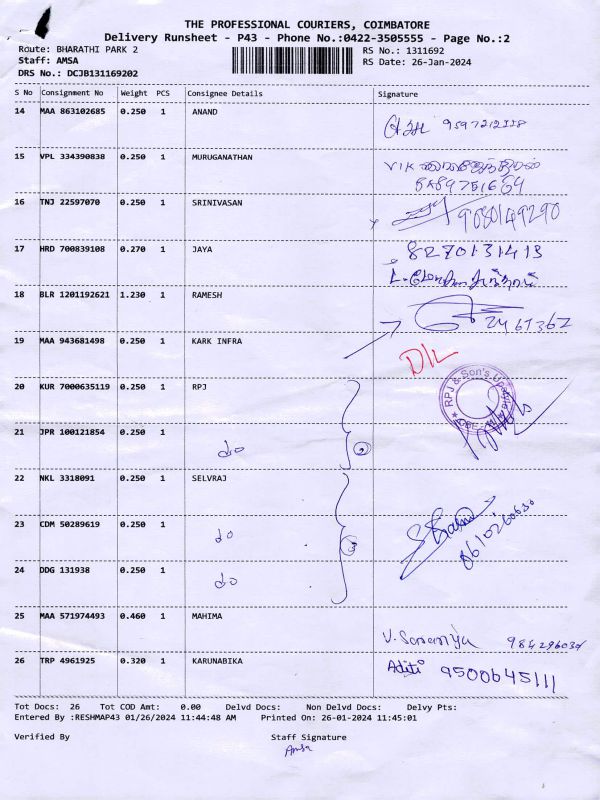 THE PROFESSIONAL COURIERS, COIMBATORE
Delivery Runsheet - P43 - Phone No.:0422-3505555 - Page No.:2
Route: BHARATHI PARK 2 RS No.: 1311692
Staff: AMSA RS Date: 26-Jan-2024
DRS No.: DCJB131169202
S No Consignment No Weight PCS Consignee Details Signature
14 MAA 863102685 0.250 1 ANAND
15 VPL 334390838 0.250 1 MURUGANATHAN VIK
16 TNJ 22597070 0.250 1 SRINIVASAN 9080149290
17 HRD 700839108 0.270 1 JAYA 8270131413
18 BLR 1201192621 1.230 1 RAMESH 2461362
19 MAA 943681498 0.250 1 KARK INFRA D/L
20 KUR 7000635119 0.250 1 RPJ RPJ & Son's
21 JPR 100121854 0.250 1 do 2
22 NKL 3318091 0.250 1 SELVRAJ
23 CDM 50289619 0.250 1 do 3 8610260630
24 DDG 131938 0.250 1 do
25 MAA 571974493 0.460 1 MAHIMA
26 TRP 4961925 0.320 1 KARUNABIKA Aditi 9500645111
Tot Docs: 26 Tot COD Amt: 0.00 Delvd Docs: Non Delvd Docs: Delvy Pts:
Entered By :RESHMAP43 01/26/2024 11:44:48 AM Printed On: 26-01-2024 11:45:01
Verified By Staff Signature
Amsa